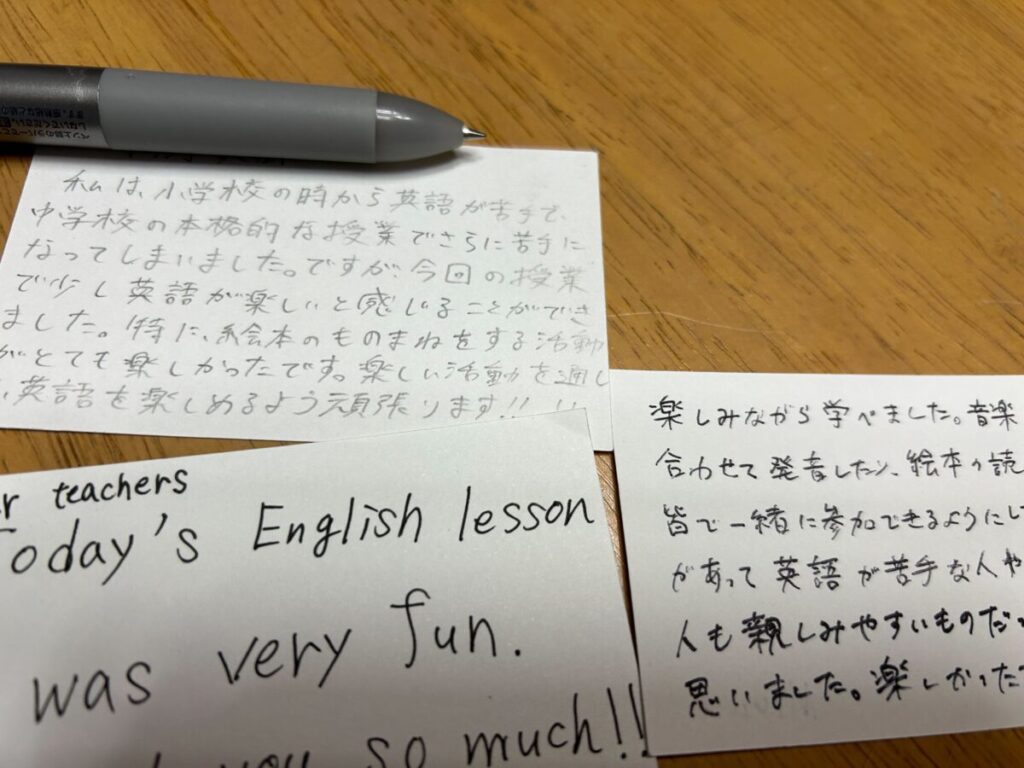 私は、小学校の時から英語が苦手で、
中学校の本格的な授業でさらに苦手に
なってしまいました。ですが、今回の授業
で少し英語が楽しいと感じることができ
ました。特に、絵本のものまねをする活動
がとても楽しかったです。楽しい活動を通し
、英語を楽しめるよう頑張ります!!
r teachers
Today's English lesson
was very fun.
you so much!!
楽しみながら学べました。音楽
合わせて発音したり、絵本の読
皆で一緒に参加できるようにして
があって英語が苦手な人や
人も親しみやすいものだ
思いました。楽しかった